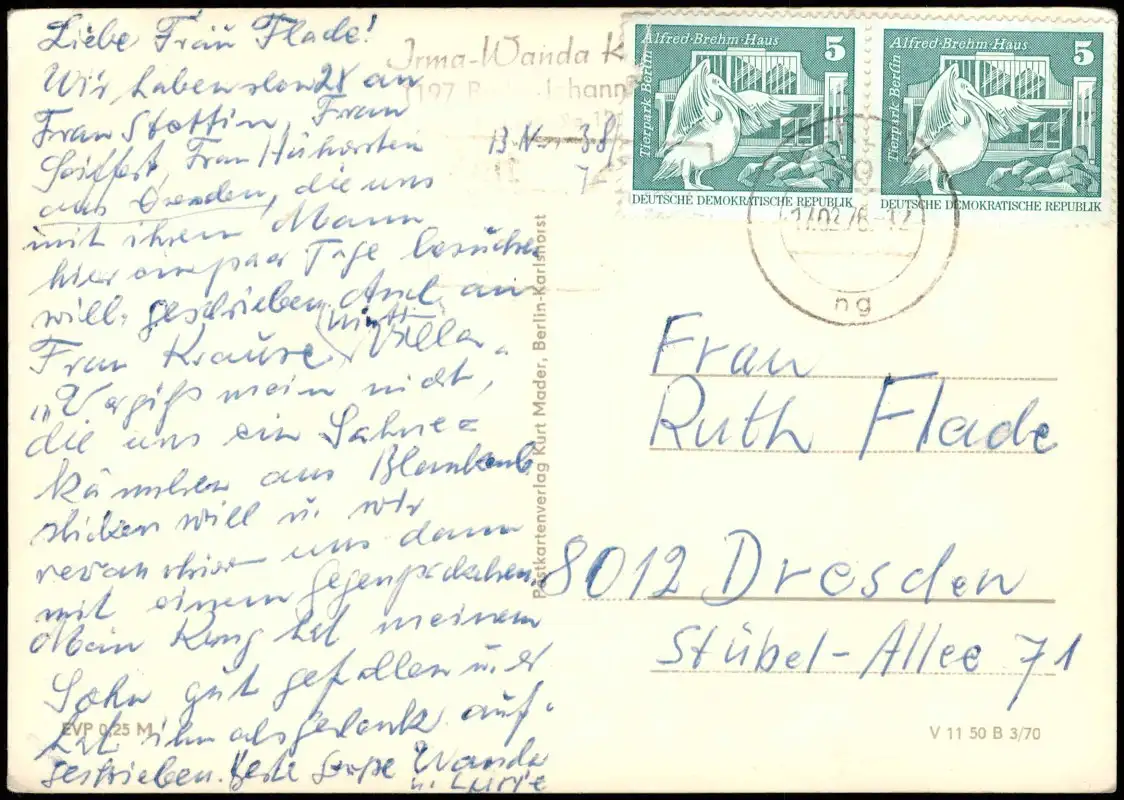 Liebe Frau Flade!
Wir haben schon 2x an
Frau Stettin, Frau
Seiffert, Frau
aus Dresden, die uns
mit ihrem Mann
hier ein paar Tage besuchen
will, geschrieben. Auch an
Frau Krause, Villa
"Vergißmeinnicht",
die uns ein Sahne=
kännchen aus Blankenb.
schicken will u. wir
revanchieren uns dann
mit einem Gegenpäckchen.
Mein hat meinem
Sohn gut gefallen u. er
hat ihn als auf-
geschrieben. Beste Grüße Wanda
u.
Irma-Wanda K
1197 B
B.N. 38/
Alfred-Brehm-Haus
5
Tierpark Berlin
DEUTSCHE DEMOKRATISCHE REPUBLIK
Alfred-Brehm-Haus
5
Tierpark Berlin
DEUTSCHE DEMOKRATISCHE REPUBLIK
17.02.76.-12
ng
Postkartenverlag Kurt Mader, Berlin-Karlshorst
Frau
Ruth Flade
8012 Dresden
Stübel-Allee 71
EVP 0,25 M
V 11 50 B 3/70